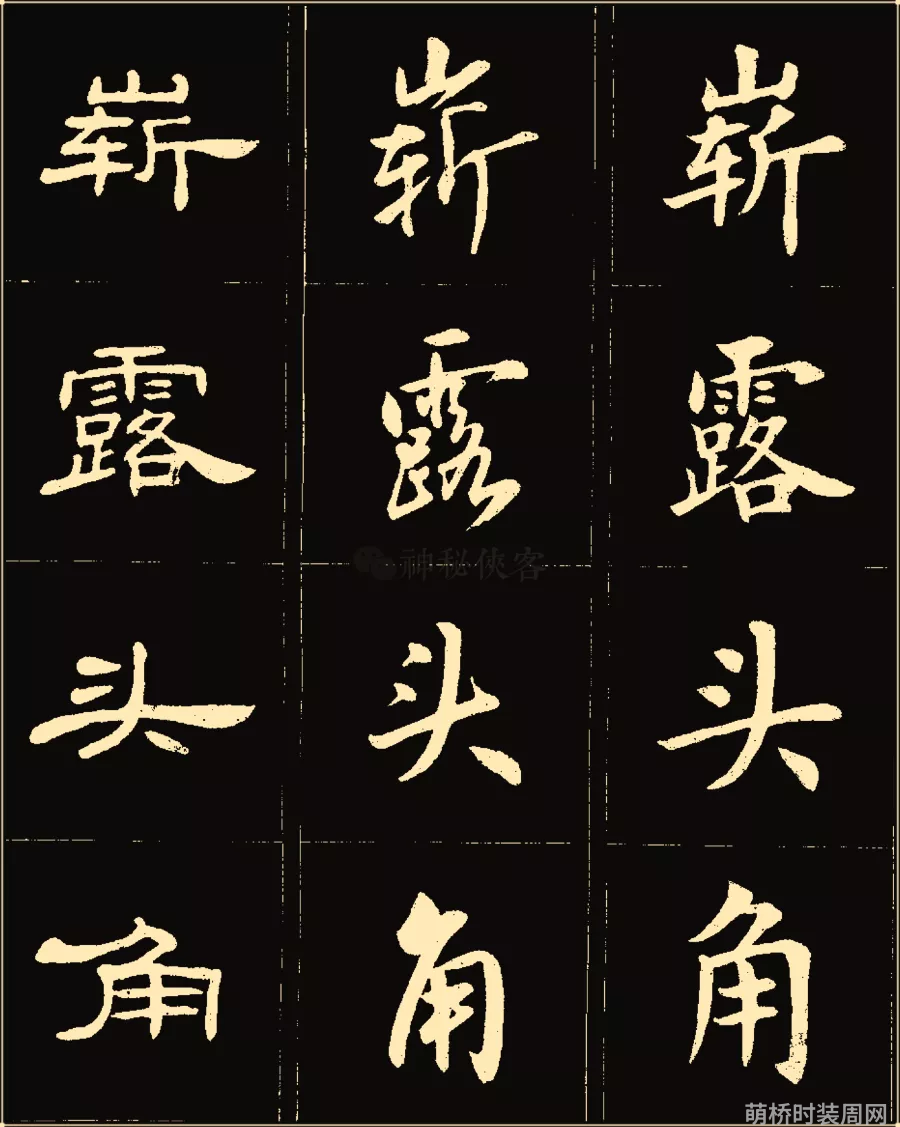 崭露头角
崭露头角
崭露头角
神秘俠客
萌桥时装周网